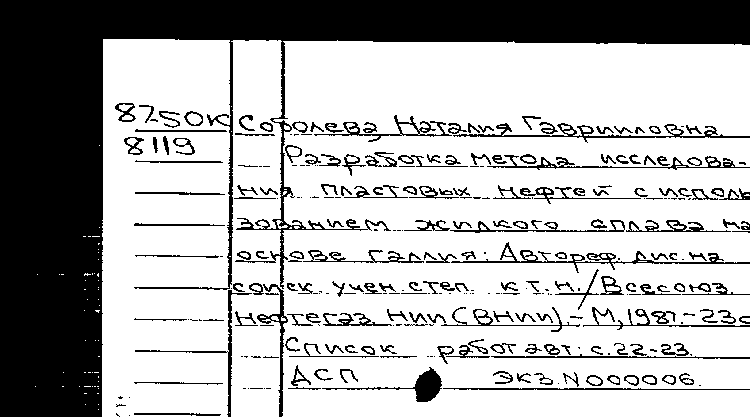 87-50К Соболева, Наталия Гаврииловна
8119 Разработка метода исследова-
ния пластовых нефтей с исполь
зованием жидкого сплава на
основе галлия: Автореф. дис. на
соиск. учен. степ. к.т.н. / Всесоюз.
Нефтегаз. НИИ (ВНИИ). - М, 1987. - 23с
Список работ авт: с. 22-23.
ДСП ЭКЗ. N 000006.